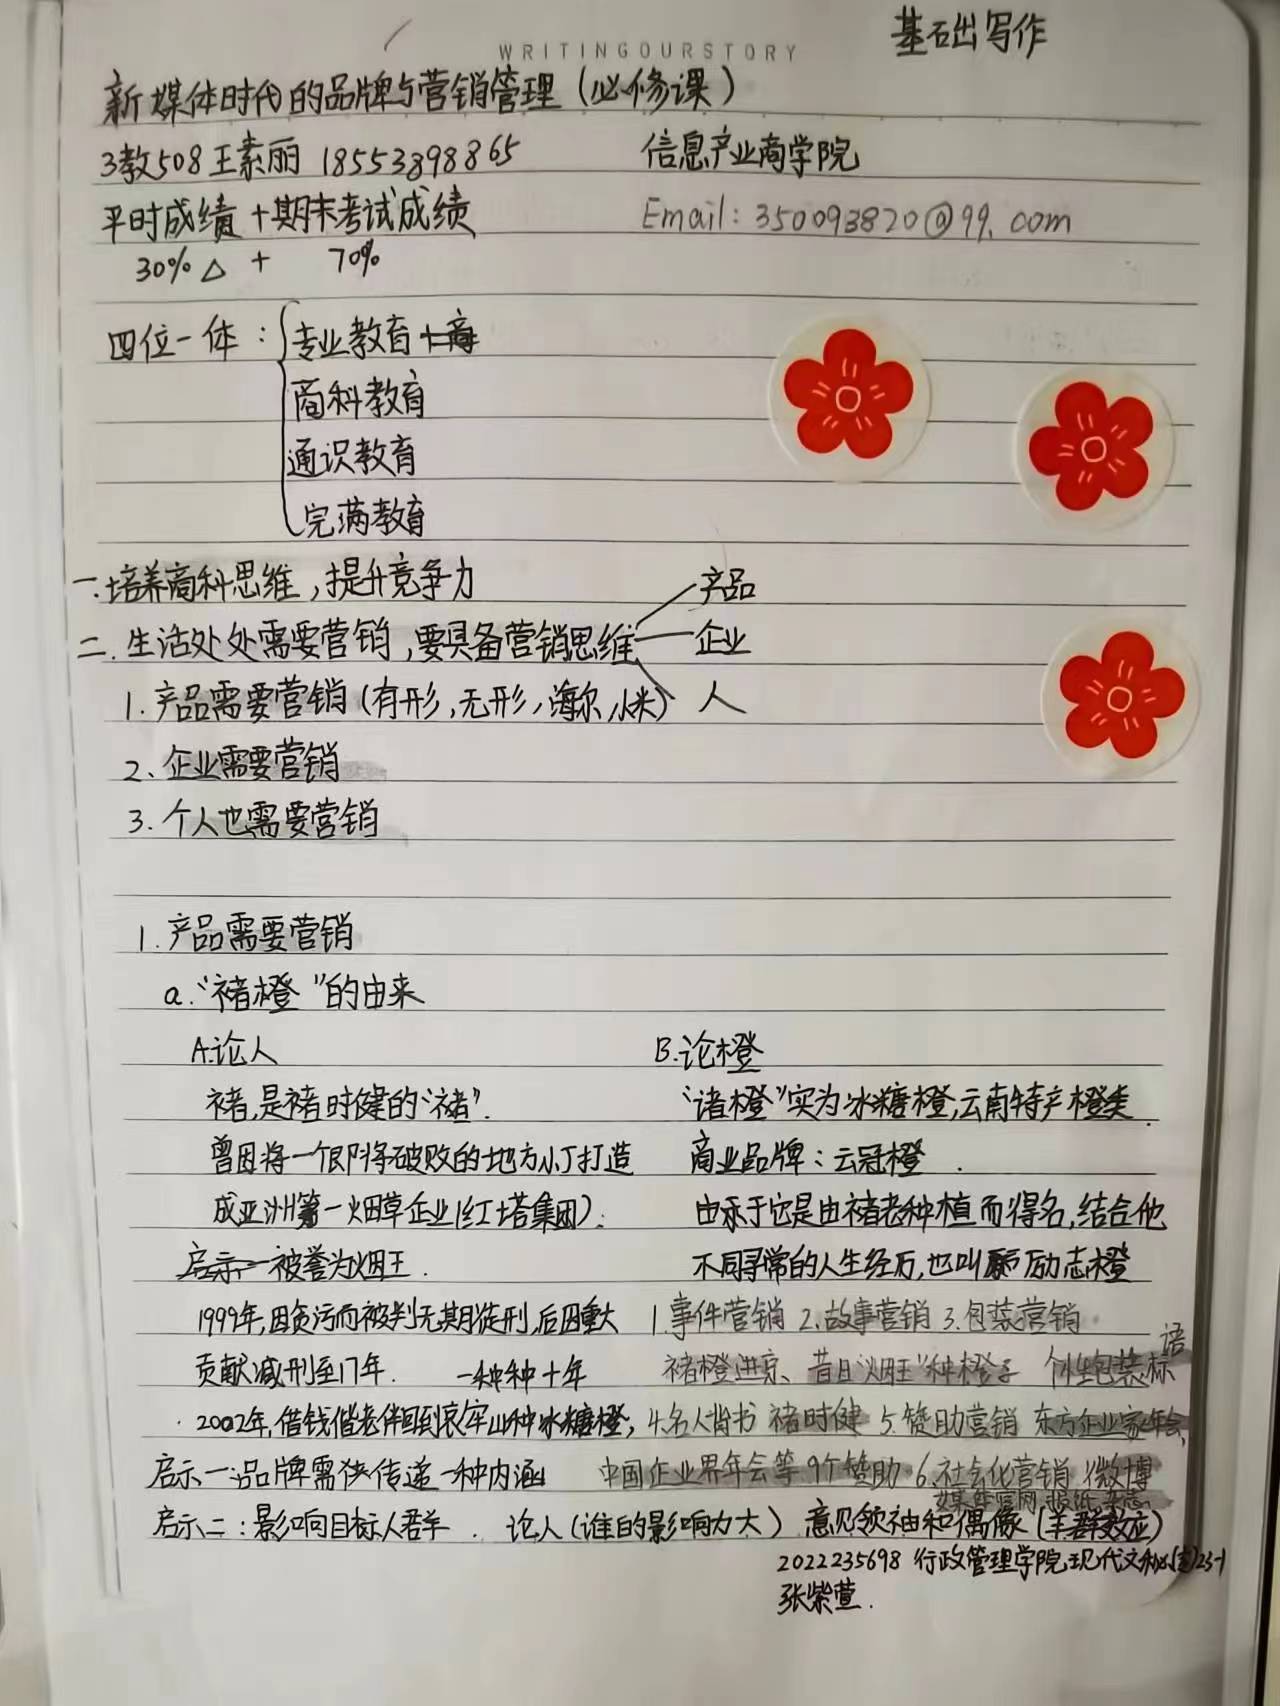 基础写作
WRITINGOURSTORY
新媒体时代的品牌与营销管理（必修课）
3教508王素丽 18553898865 信息产业商学院
平时成绩+期末考试成绩 Email：350093820@99.com
30%△ + 70%
四位一体：专业教育
商科教育
通识教育
完满教育
一.培养商科思维，提升竞争力
二.生活处处需要营销，要具备营销思维 产品 企业 人
1.产品需要营销（有形，无形，海尔，小米）
2、企业需要营销
3.个人也需要营销
1.产品需要营销
a.“褚橙”的由来
A.论人 B.论橙
褚，是褚时健的“褚”. “诸橙”实为冰糖橙，云南特产橙类.
曾因将一个即将破败的地方小厂打造 商业品牌：云冠橙.
成亚洲第一烟草企业（红塔集团）； 由于它是由褚老种植而得名，结合他
被誉为烟王. 不同寻常的人生经历，也叫励志橙
1999年，因贪污而被判无期徒刑，后因重大 1.事件营销 2.故事营销 3.包装营销
贡献减刑至17年. 一种种十年 褚橙进京、昔日“烟王”种橙子 个性包装标语
2002年，借钱偕老伴回到哀牢山种冰糖橙， 4.名人背书 褚时健 5.赞助营销 东方企业家年会，
启示一：品牌需供传递一种内涵 中国企业界年会等9个赞助 6.社会化营销 微博
媒体官网、报纸、杂志
启示二：影响目标人群. 论人（谁的影响力大） 意见领袖和偶像（羊群效应）
2022235698 行政管理学院现代文秘(专)23-1
张紫萱.